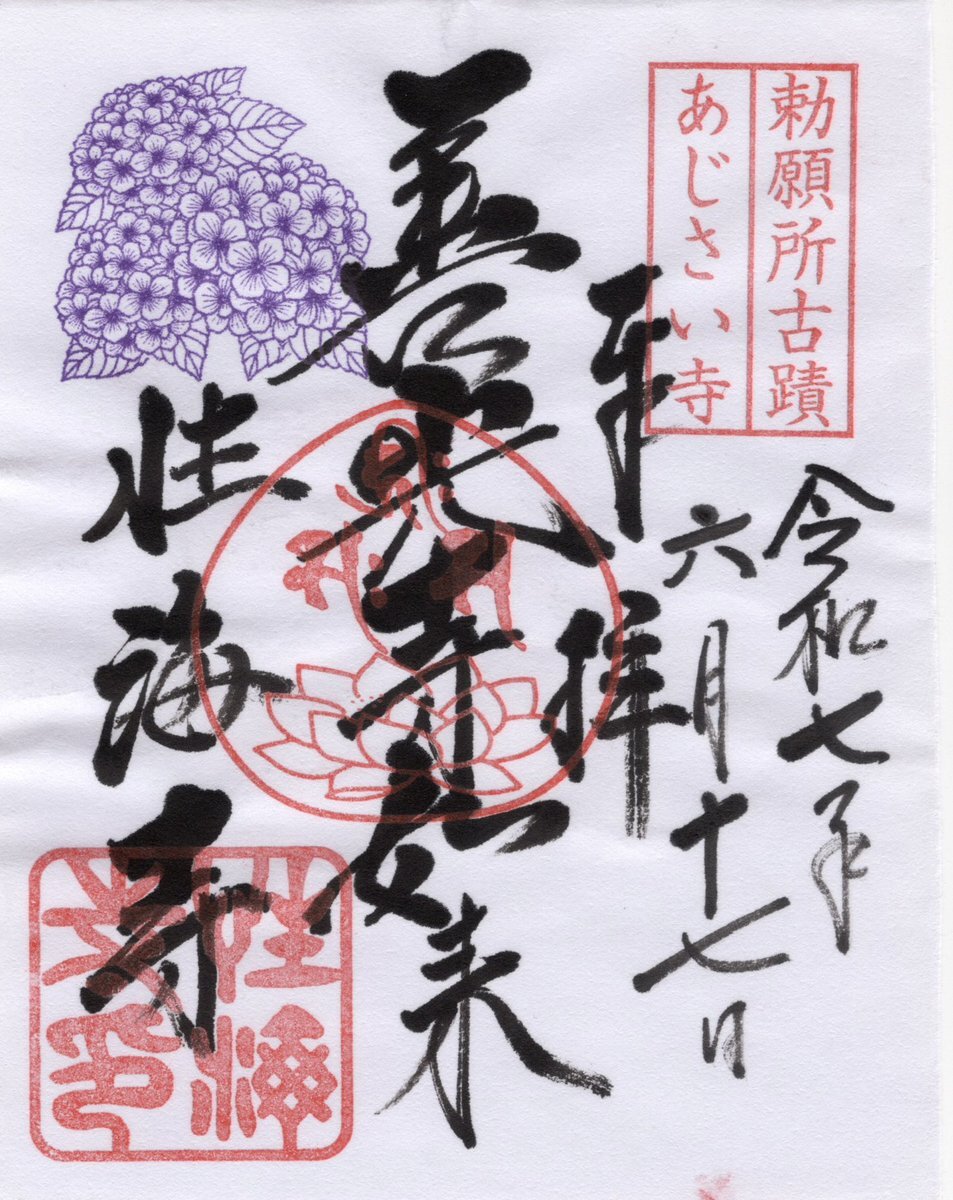 勅願所古蹟
あじさい寺
令和七年
六月十七日
奉拝
善光寺如来
性海寺
性海
寺印